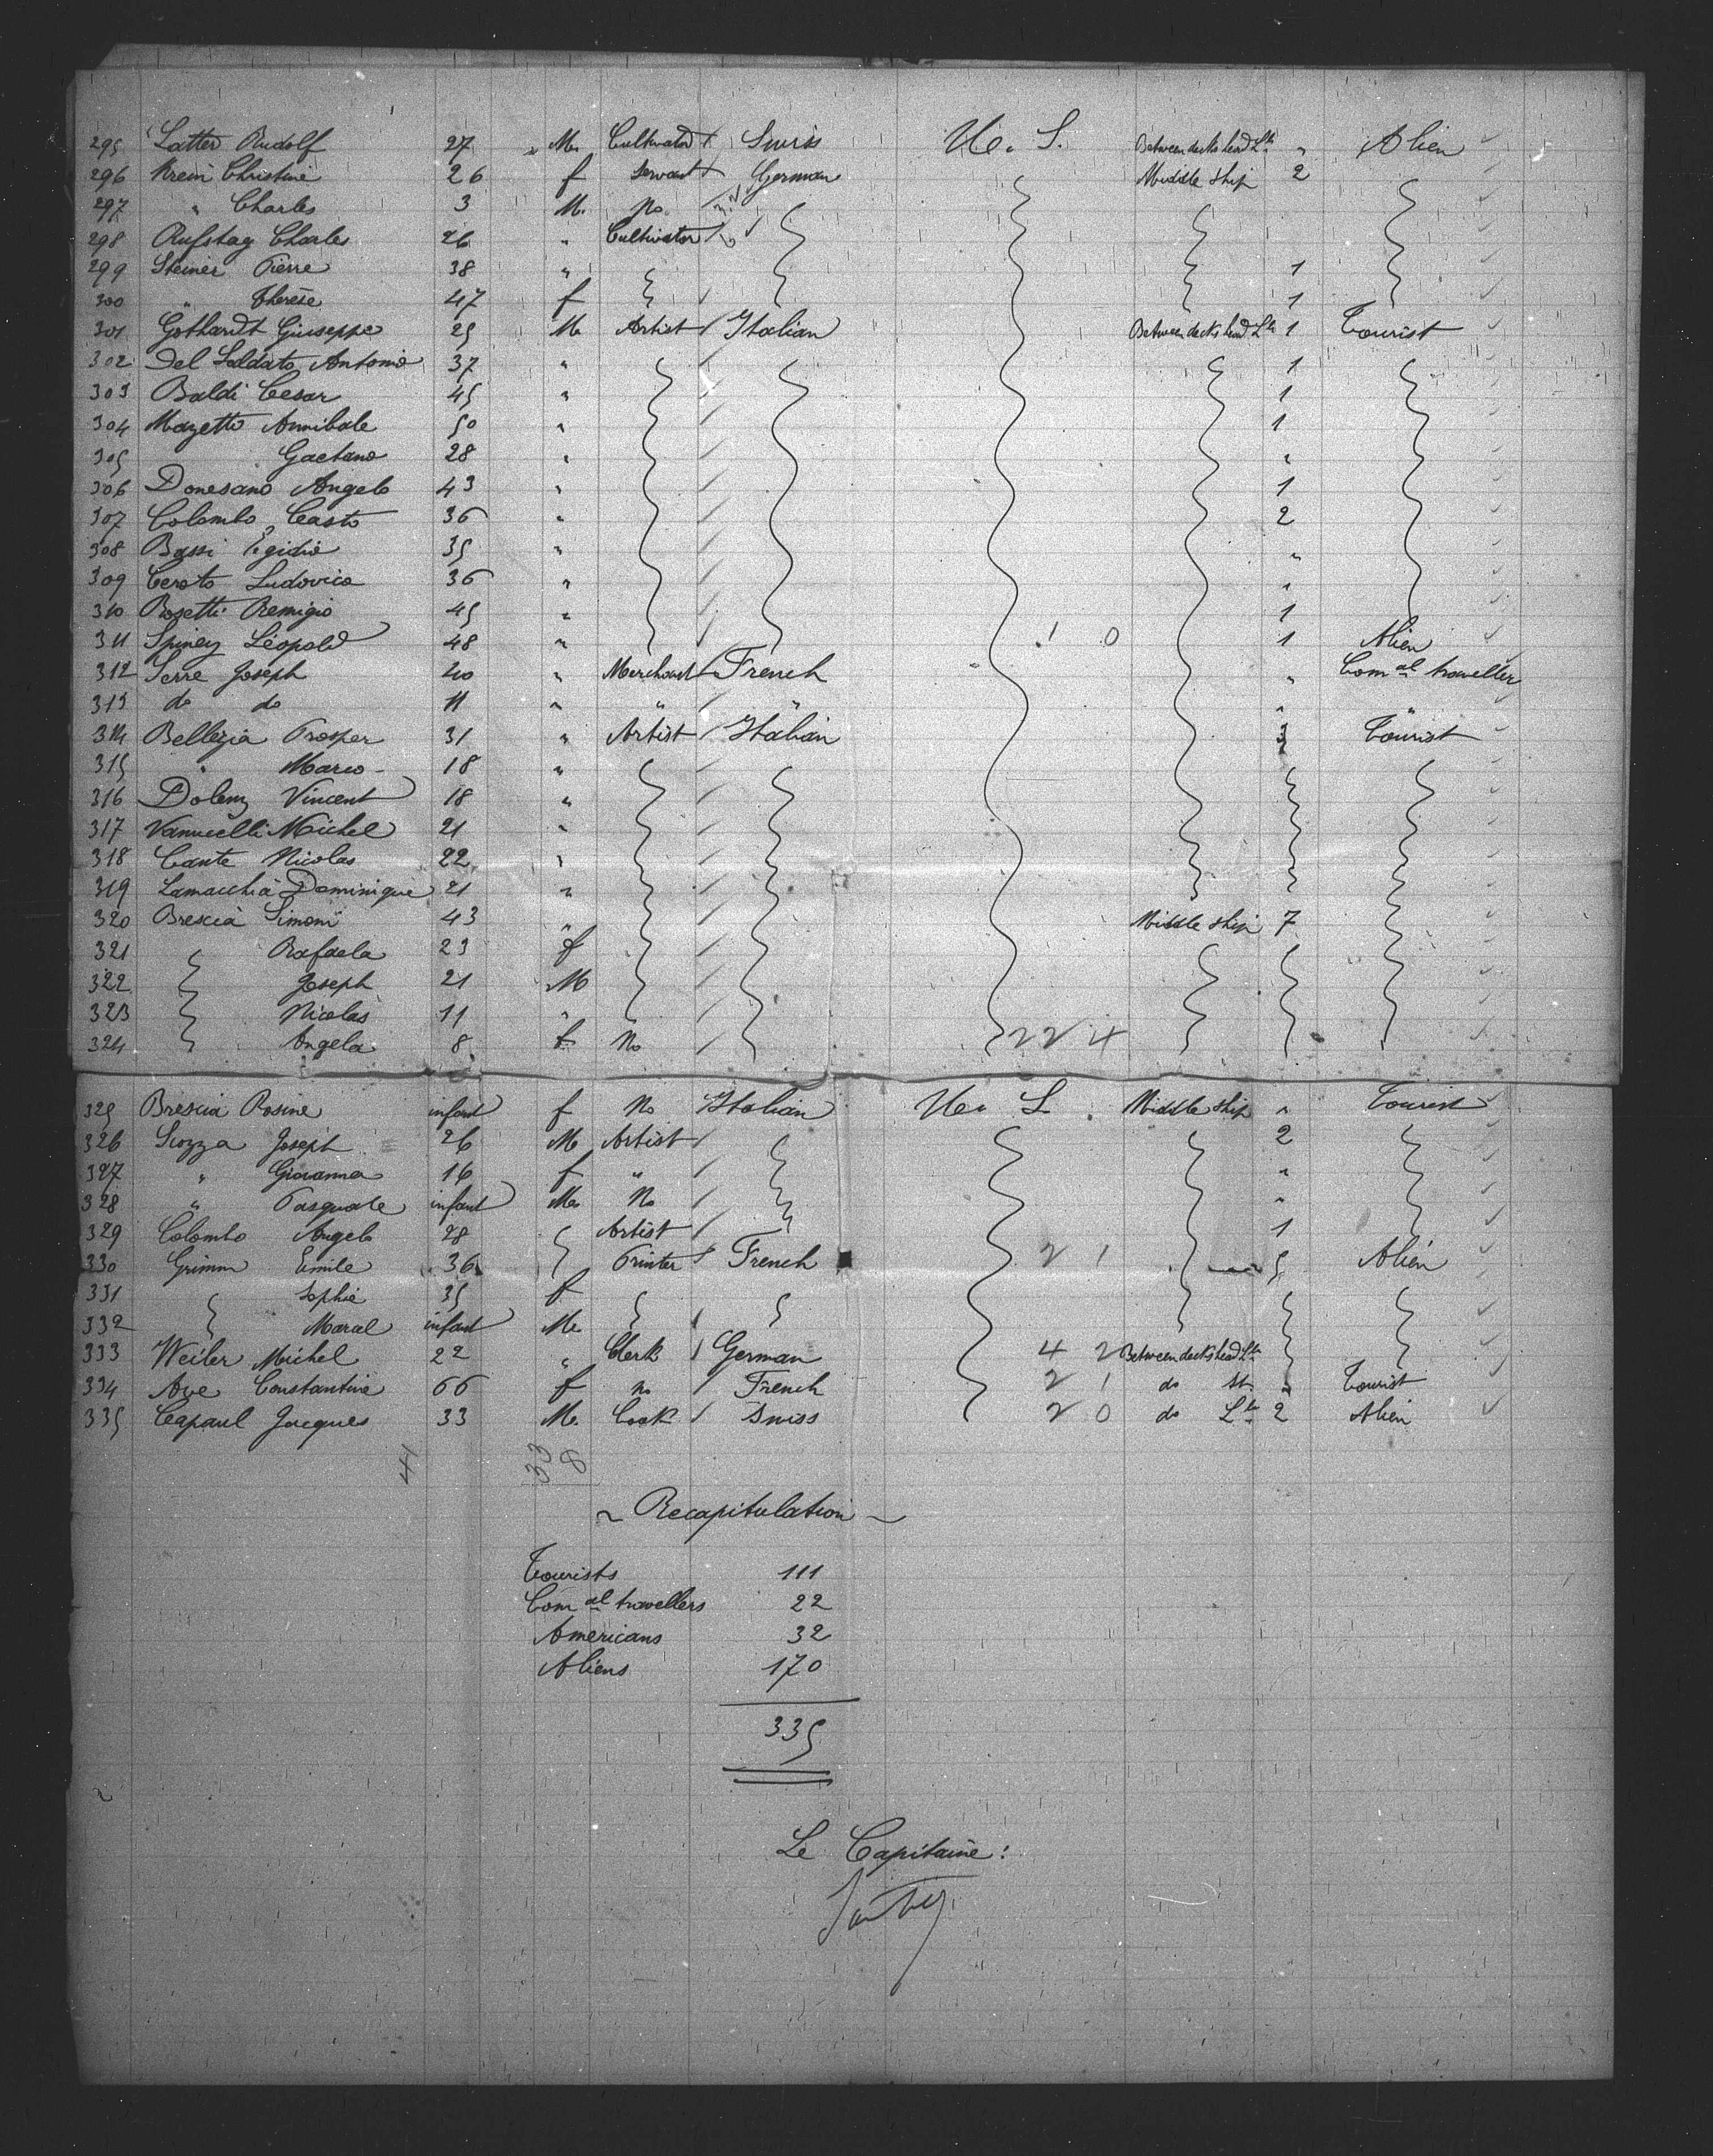 295 Latter Rudolf 27 " M. Cultivator Swiss Un. S. Between decks head Lt. " Alien
296 Krein Christine 26 f Servant German Middle Ship 2
297 " Charles 3 M. No
298 Rufstag Charles 26 " Cultivator
299 Steiner Pierre 38 " 1
300 " Therèse 47 f 1
301 Gothardt Giuseppe 25 M Artist Italian Between decks head Lt. 1 Tourist
302 Del Soldato Antonio 37 " 1
303 Baldi Cesar 45 " 1
304 Mazetti Annibale 50 " 1
305 Gaetano 28 " "
306 Donesano Angelo 43 " 1
307 Colombo Casto 36 " 2
308 Bassi Egidio 35 " "
309 Cerato Ludovico 36 " "
310 Rosetti Remigio 45 " 1
311 Spiney Léopold 48 " 1 0 1 Alien
312 Serre Joseph 40 " Merchant French " Com al traveller
313 do do 11 " " " " "
314 Bellezia Prosper 31 " Artist Italian 3 Tourist
315 " Marco 18 "
316 Dolenz Vincent 18 "
317 Vanucelli Michel 21 "
318 Cante Nicolas 22 "
319 Lamacchia Dominique 21 "
320 Brescia Simoni 43 " Middle Ship 7
321 Rafaela 23 f
322 Joseph 21 M
323 Nicolas 11 "
324 Angela 8 f No 22 4
325 Brescia Rosine infant f No Italian Un. S. Middle Ship " Tourist
326 Siozza Joseph 26 M Artist 2
327 " Giovanna 16 f " "
328 " Pasquale infant M. No "
329 Colombo Angelo 28 Artist 1
330 Grimm Emile 36 Printer French 2 1 5 Alien
331 Sophie 35 f
332 Marcel infant M.
333 Weiler Michel 22 " Clerk German 4 2 Between decks head Lt.
334 Ave Constantine 66 f no French 2 1 do St. " Tourist
335 Capaul Jacques 33 M. Cook Swiss 2 0 do Lt. 2 Alien
41 33 8
~ Recapitulation ~
Tourists 111
Com al travellers 22
Americans 32
Aliens 170
335
Le Capitaine: